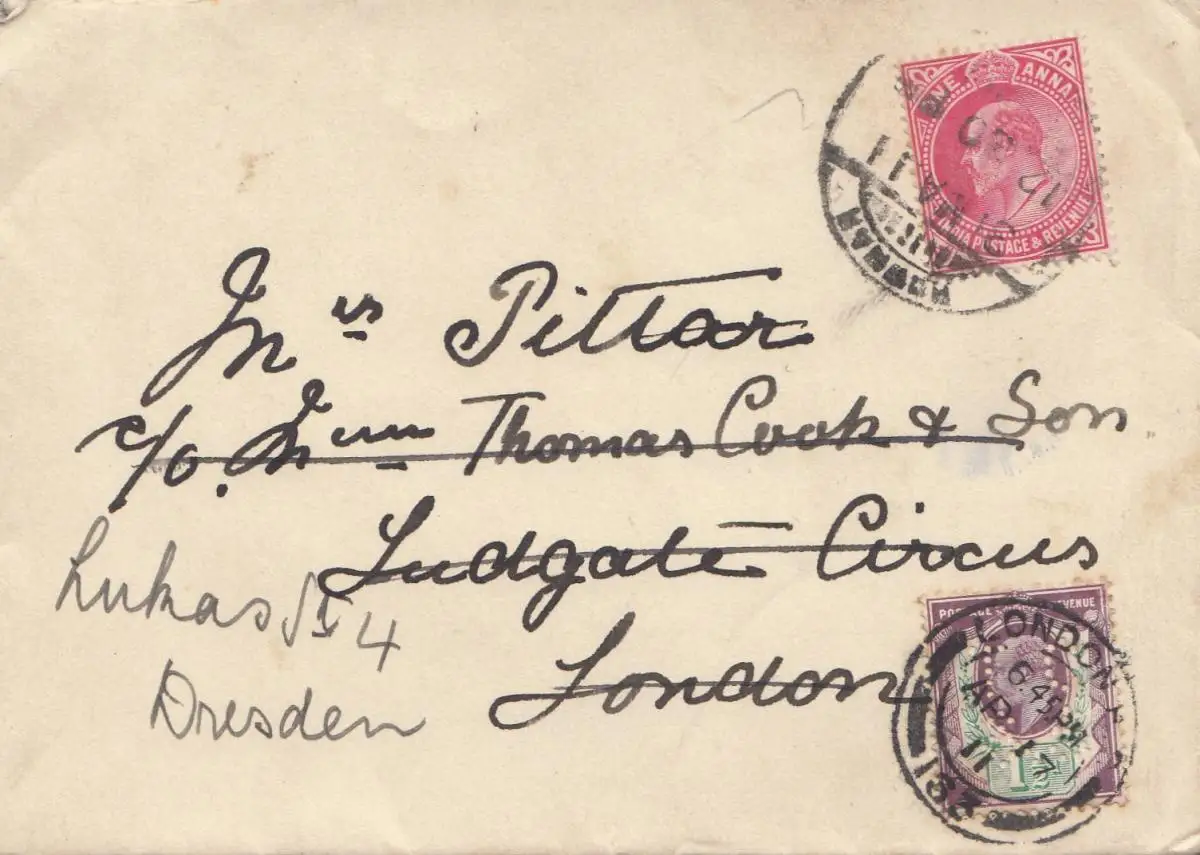 ONE ANNA
INDIA POSTAGE & REVENUE
HOWRAH
Mrs Pittar
c/o. Messrs Thomas Cook & Son
Ludgate Circus
London
Lukas Str 4
Dresden
POSTAGE REVENUE
LONDON
6.45 PM
AP 17
11
1½